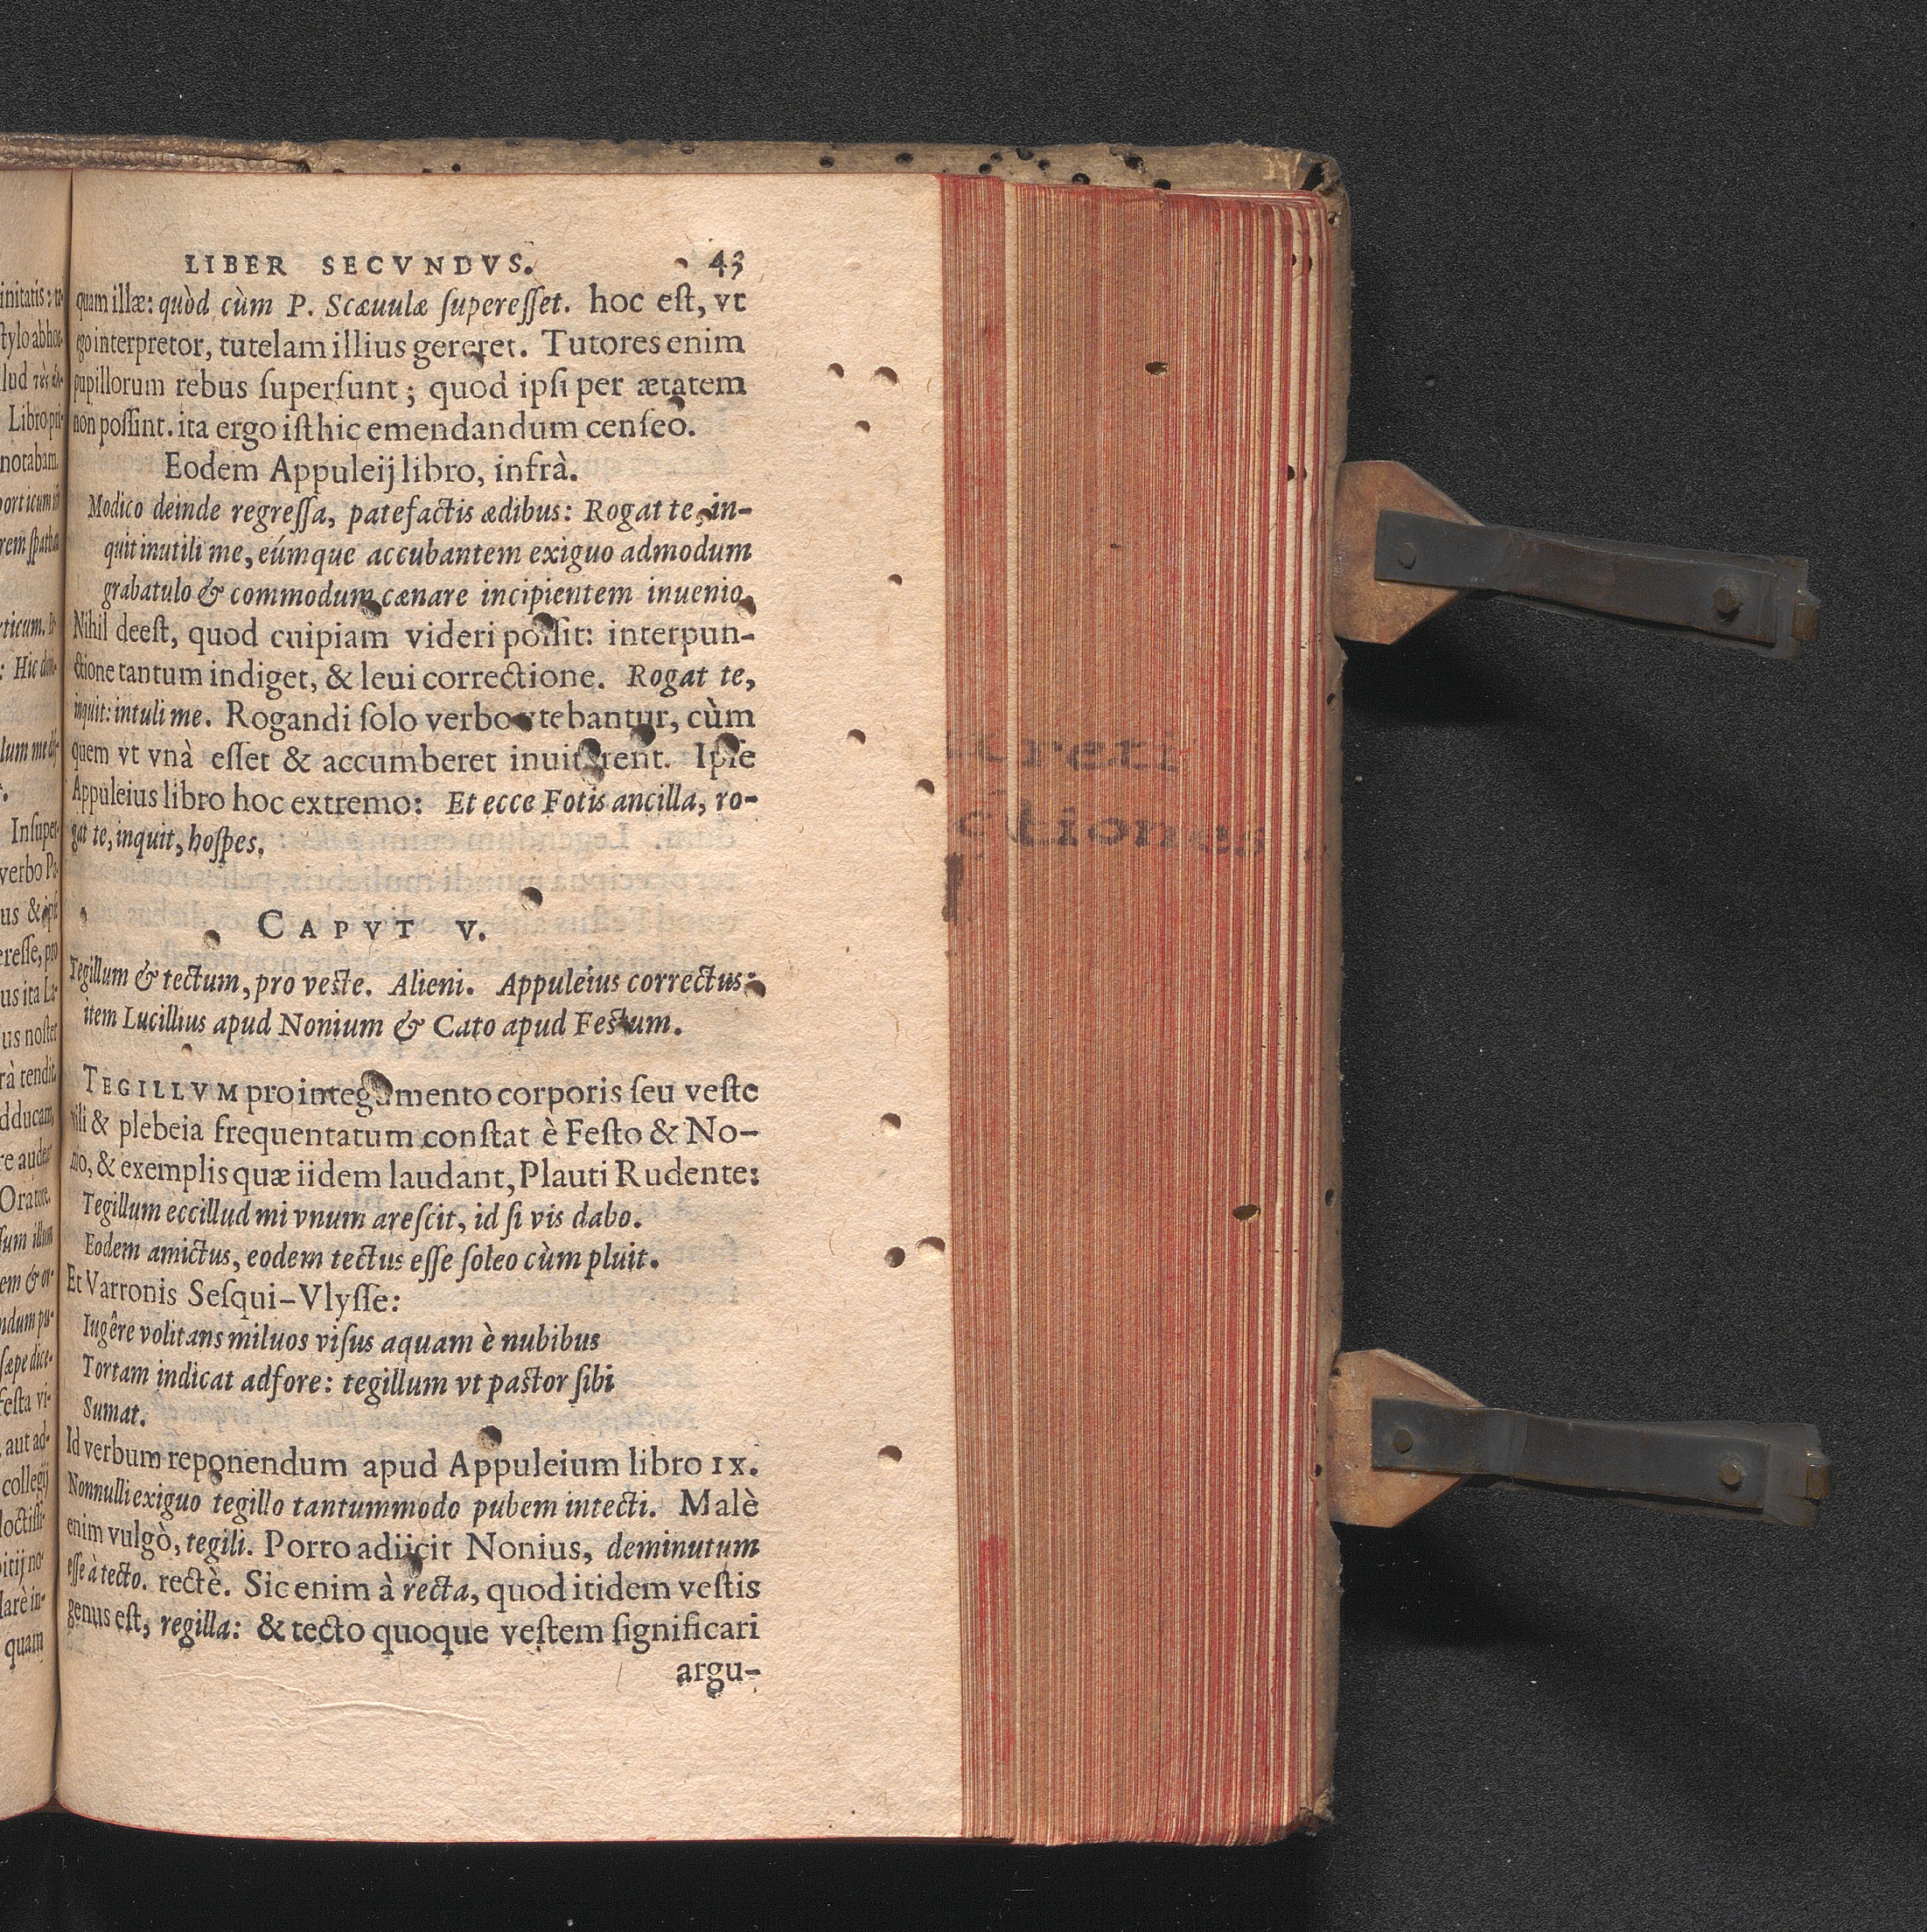 LIBER SECVNDVS. 43
quam illæ: quòd cùm P. Scæuulæ ſupereſſet. hoc eſt, vt
ego interpretor, tutelam illius gereret. Tutores enim
pupillorum rebus ſuperſunt; quod ipſi per ætatem
non poſſint. ita ergo iſthic emendandum cenſeo.
Eodem Appuleij libro, infrà.
Modico deinde regreſſa, patefactis ædibus: Rogat te, in-
quit inutili me, eúmque accubantem exiguo admodum
grabatulo & commodum cænare incipientem inuenio.
Nihil deeſt, quod cuipiam videri poſſit: interpun-
ctione tantum indiget, & leui correctione. Rogat te,
inquit: intuli me. Rogandi ſolo verbo vtebantur, cùm
quem vt vnà eſſet & accumberet inuitarent. Ipſe
Appuleius libro hoc extremo: Et ecce Fotis ancilla, ro-
gat te, inquit, hoſpes.
CAPVT V.
Tegillum & tectum, pro veſte. Alieni. Appuleius correctus:
item Lucillius apud Nonium & Cato apud Feſtum.
TEGILLVM pro integumento corporis ſeu veſte
vili & plebeia frequentatum conſtat è Feſto & No-
nio, & exemplis quæ iidem laudant, Plauti Rudente:
Tegillum eccillud mi vnum areſcit, id ſi vis dabo.
Eodem amictus, eodem tectus eſſe ſoleo cùm pluit.
Et Varronis Seſqui-Vlyſſe:
Iugêre volitans miluos viſus aquam è nubibus
Tortam indicat adfore: tegillum vt paſtor ſibi
Sumat.
Id verbum reponendum apud Appuleium libro IX.
Nonnulli exiguo tegillo tantummodo pubem intecti. Malè
enim vulgò, tegili. Porro adiicit Nonius, deminutum
eſſe à tecto. rectè. Sic enim à recta, quod itidem veſtis
genus eſt, regilla: & tecto quoque veſtem ſignificari
argu-